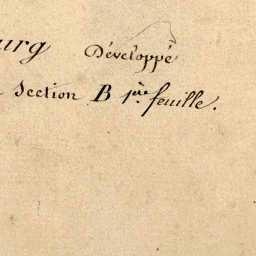 urg Développé
Section B 1ère feuille.